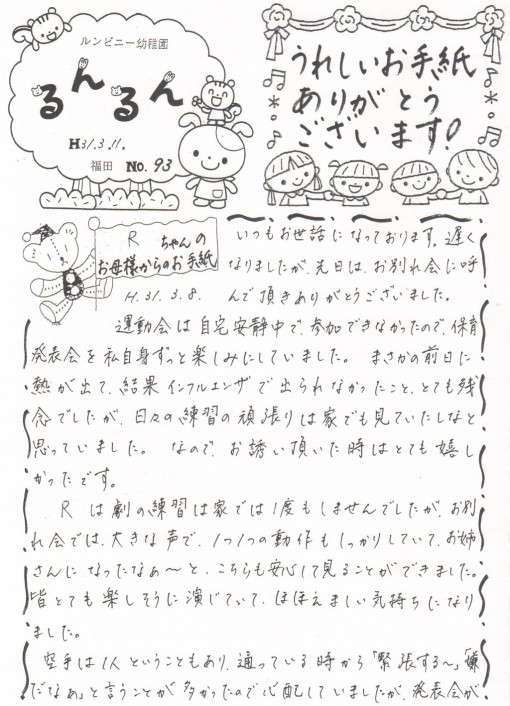 ルンビニー幼稚園
るんるん
H31.3.11.
福田 No.93
うれしいお手紙
ありがとう
ございます!
R ちゃんの
お母様からのお手紙
H.31.3.8.
いつもお世話になっております。遅く
なりましたが、先日は、お別れ会に呼
んで頂きありがとうございました。
運動会は自宅安静中で、参加できなかったので、保育
発表会を私自身ずっと楽しみにしていました。 まさかの前日に
熱が出て、結果インフルエンザで出られなかったこと、とても残
念でしたが、日々の練習の頑張りは家でも見ていたしなと
思っていました。 なので、お誘い頂いた時はとても嬉し
かったです。
R は劇の練習は家では1度もしませんでしたが、お別
れ会では、大きな声で、1つ1つの動作もしっかりしていて、お姉
さんになったなぁ〜と、こちらも安心して見ることができました。
皆とても楽しそうに演じていて、ほほえましい気持ちになり
ました。
空手は1人ということもあり、通っている時から「緊張する〜」「嫌
だなぁ」と言うことが多かったので心配していましたが、発表会が